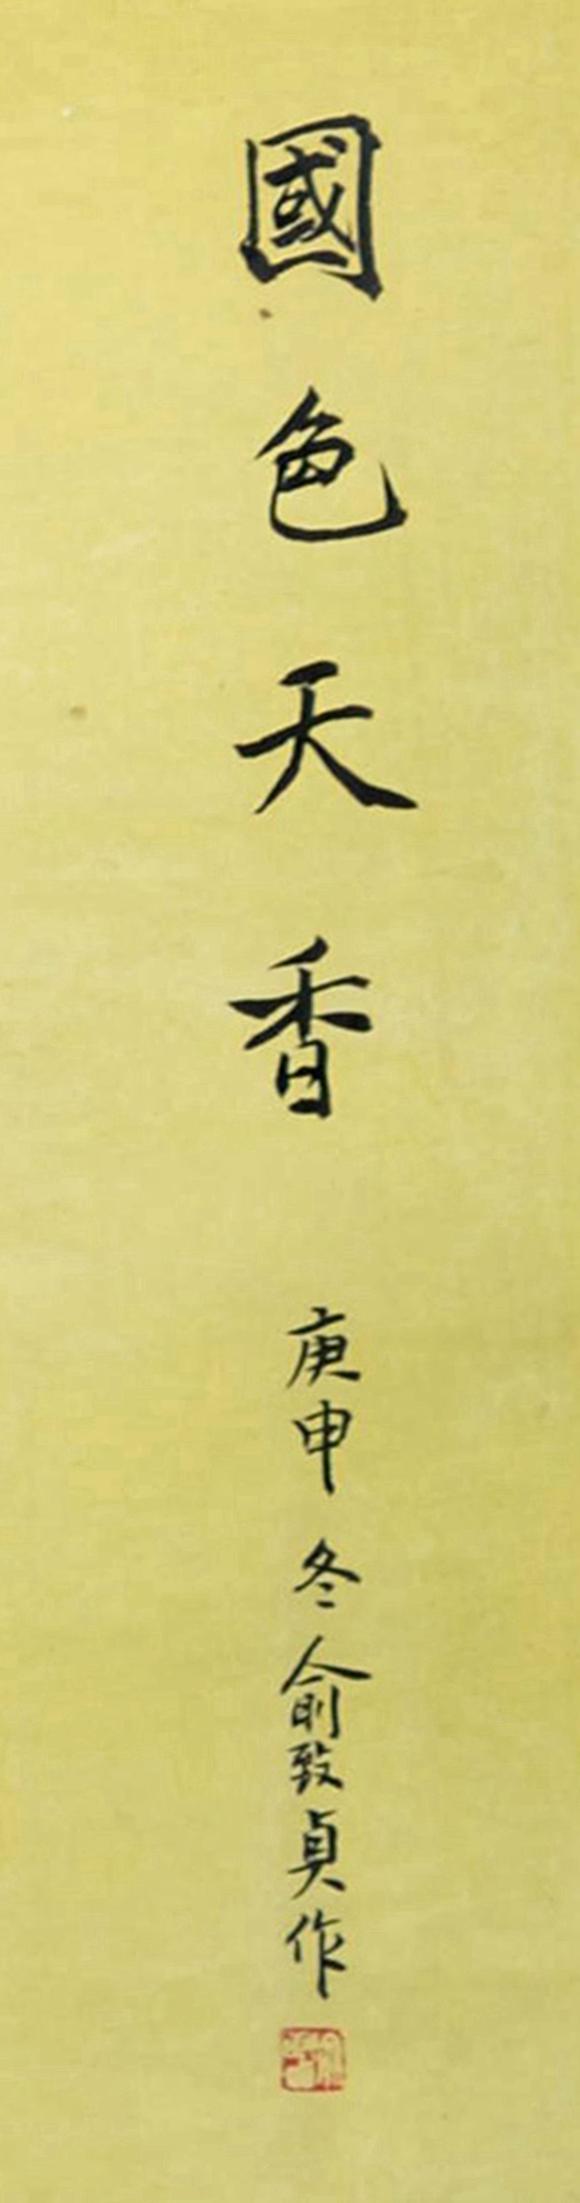 國色天香
庚申冬俞致貞作